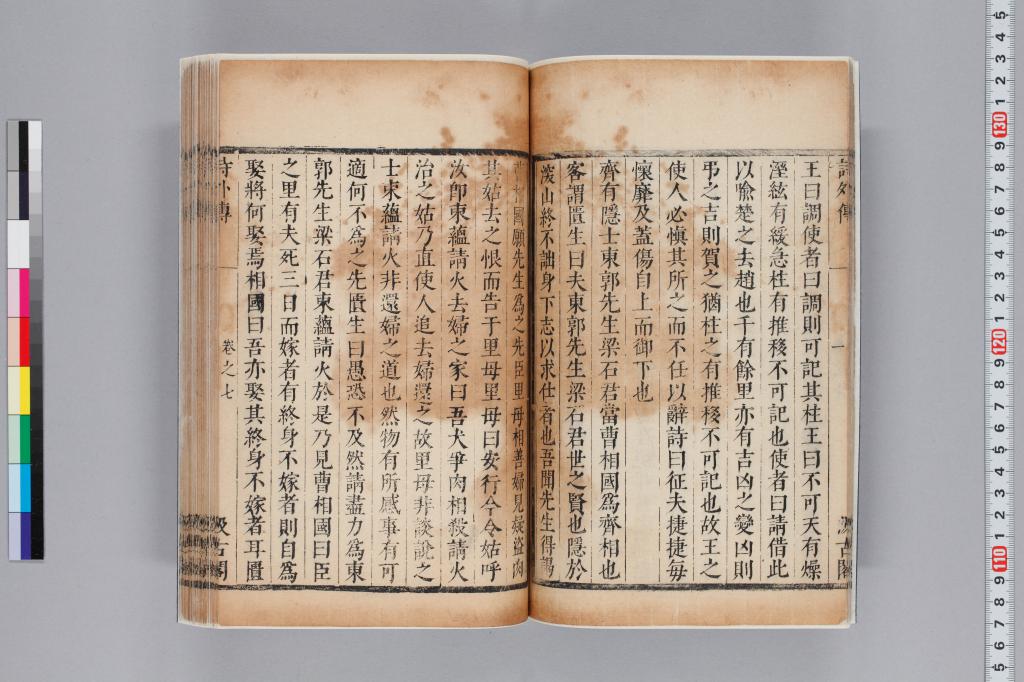 詩外傳
一
汲古閣
王曰調使者曰調則可記其柱王曰不可天有燥
溼絃有緩急柱有推移不可記也使者曰請借此
以喻楚之去趙也千有餘里亦有吉凶之變凶則
弔之吉則賀之猶柱之有推移不可記也故王之
使人必慎其所之而不任以辭詩曰征夫捷捷每
懷靡及蓋傷自上而御下也
齊有隱士東郭先生梁石君當曹相國為齊相也
客謂匱生曰夫東郭先生梁石君世之賢也隱於
深山終不詘身下志以求仕者也吾聞先生得謁
曹相國願先生為之先臣里母相善婦見疑盜肉
其姑去之恨而告于里母里母曰安行今令姑呼
汝即束蘊請火去婦之家曰吾犬爭肉相殺請火
治之姑乃直使人追去婦還之故里母非談說之
士束蘊請火非還婦之道也然物有所感事有可
適何不為之先匱生曰愚恐不及然請盡力為東
郭先生梁石君束蘊請火於是乃見曹相國曰臣
之里有夫死三日而嫁者有終身不嫁者則自為
娶將何娶焉相國曰吾亦娶其終身不嫁者耳匱
詩外傳
卷之七
汲古閣
130
120
110